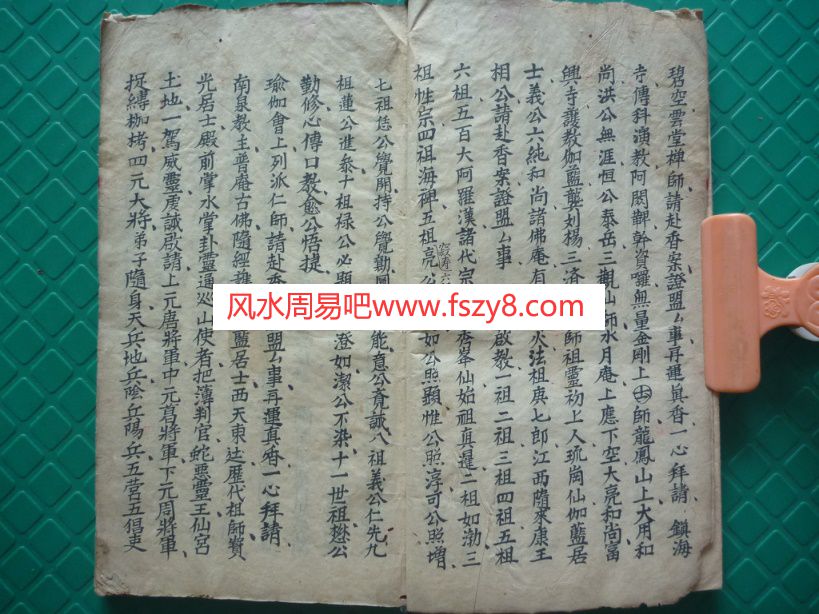 碧空雲堂禅師請赴香案證盟厶事再運眞香一心拜請 鎮海
寺傳科演教阿閦毗幹資囉無量金剛上師龍鳳山上大用和
尚洪公無涯恒公泰岳三觀山師水月庵上應下空大亮和尚富
興寺護教伽藍龔刘揚三済師祖靈初上人琉崗仙伽藍居
士義公六純和尚諸佛庵有火法祖庚七郎江西隨來康王
相公請赴香案證盟厶事啟教一祖二祖三祖四祖五祖
六祖五百大阿羅漢諸代宗峯仙始祖真暹二祖如渤三
祖性宗四祖海碑五祖亮公如公照顯惟公照浮可公照增
七祖恁公覺開持公覺勤能意公竟誠八祖義公仁先九
祖蓮公進叅十祖禄公必顯澄如潔公不染十一世祖愁公
勤修心傳口教愈公悟捷
瑜伽會上列派仁師請赴香盟厶事再運真香一心拜請
南泉教主普庵古佛隨經藍居士西天東达歴代祖師賓
光居士殿前掌水掌卦靈通巡山使者把簿判官蛇悪靈王仙宫
土地一駕威靈虔誠啟請上元唐將軍中元葛將軍下元周將軍
捉縛枷拷四元大將弟子隨身天兵地兵陰兵陽兵五营五猖吏
风水周易吧www.fszy8.com